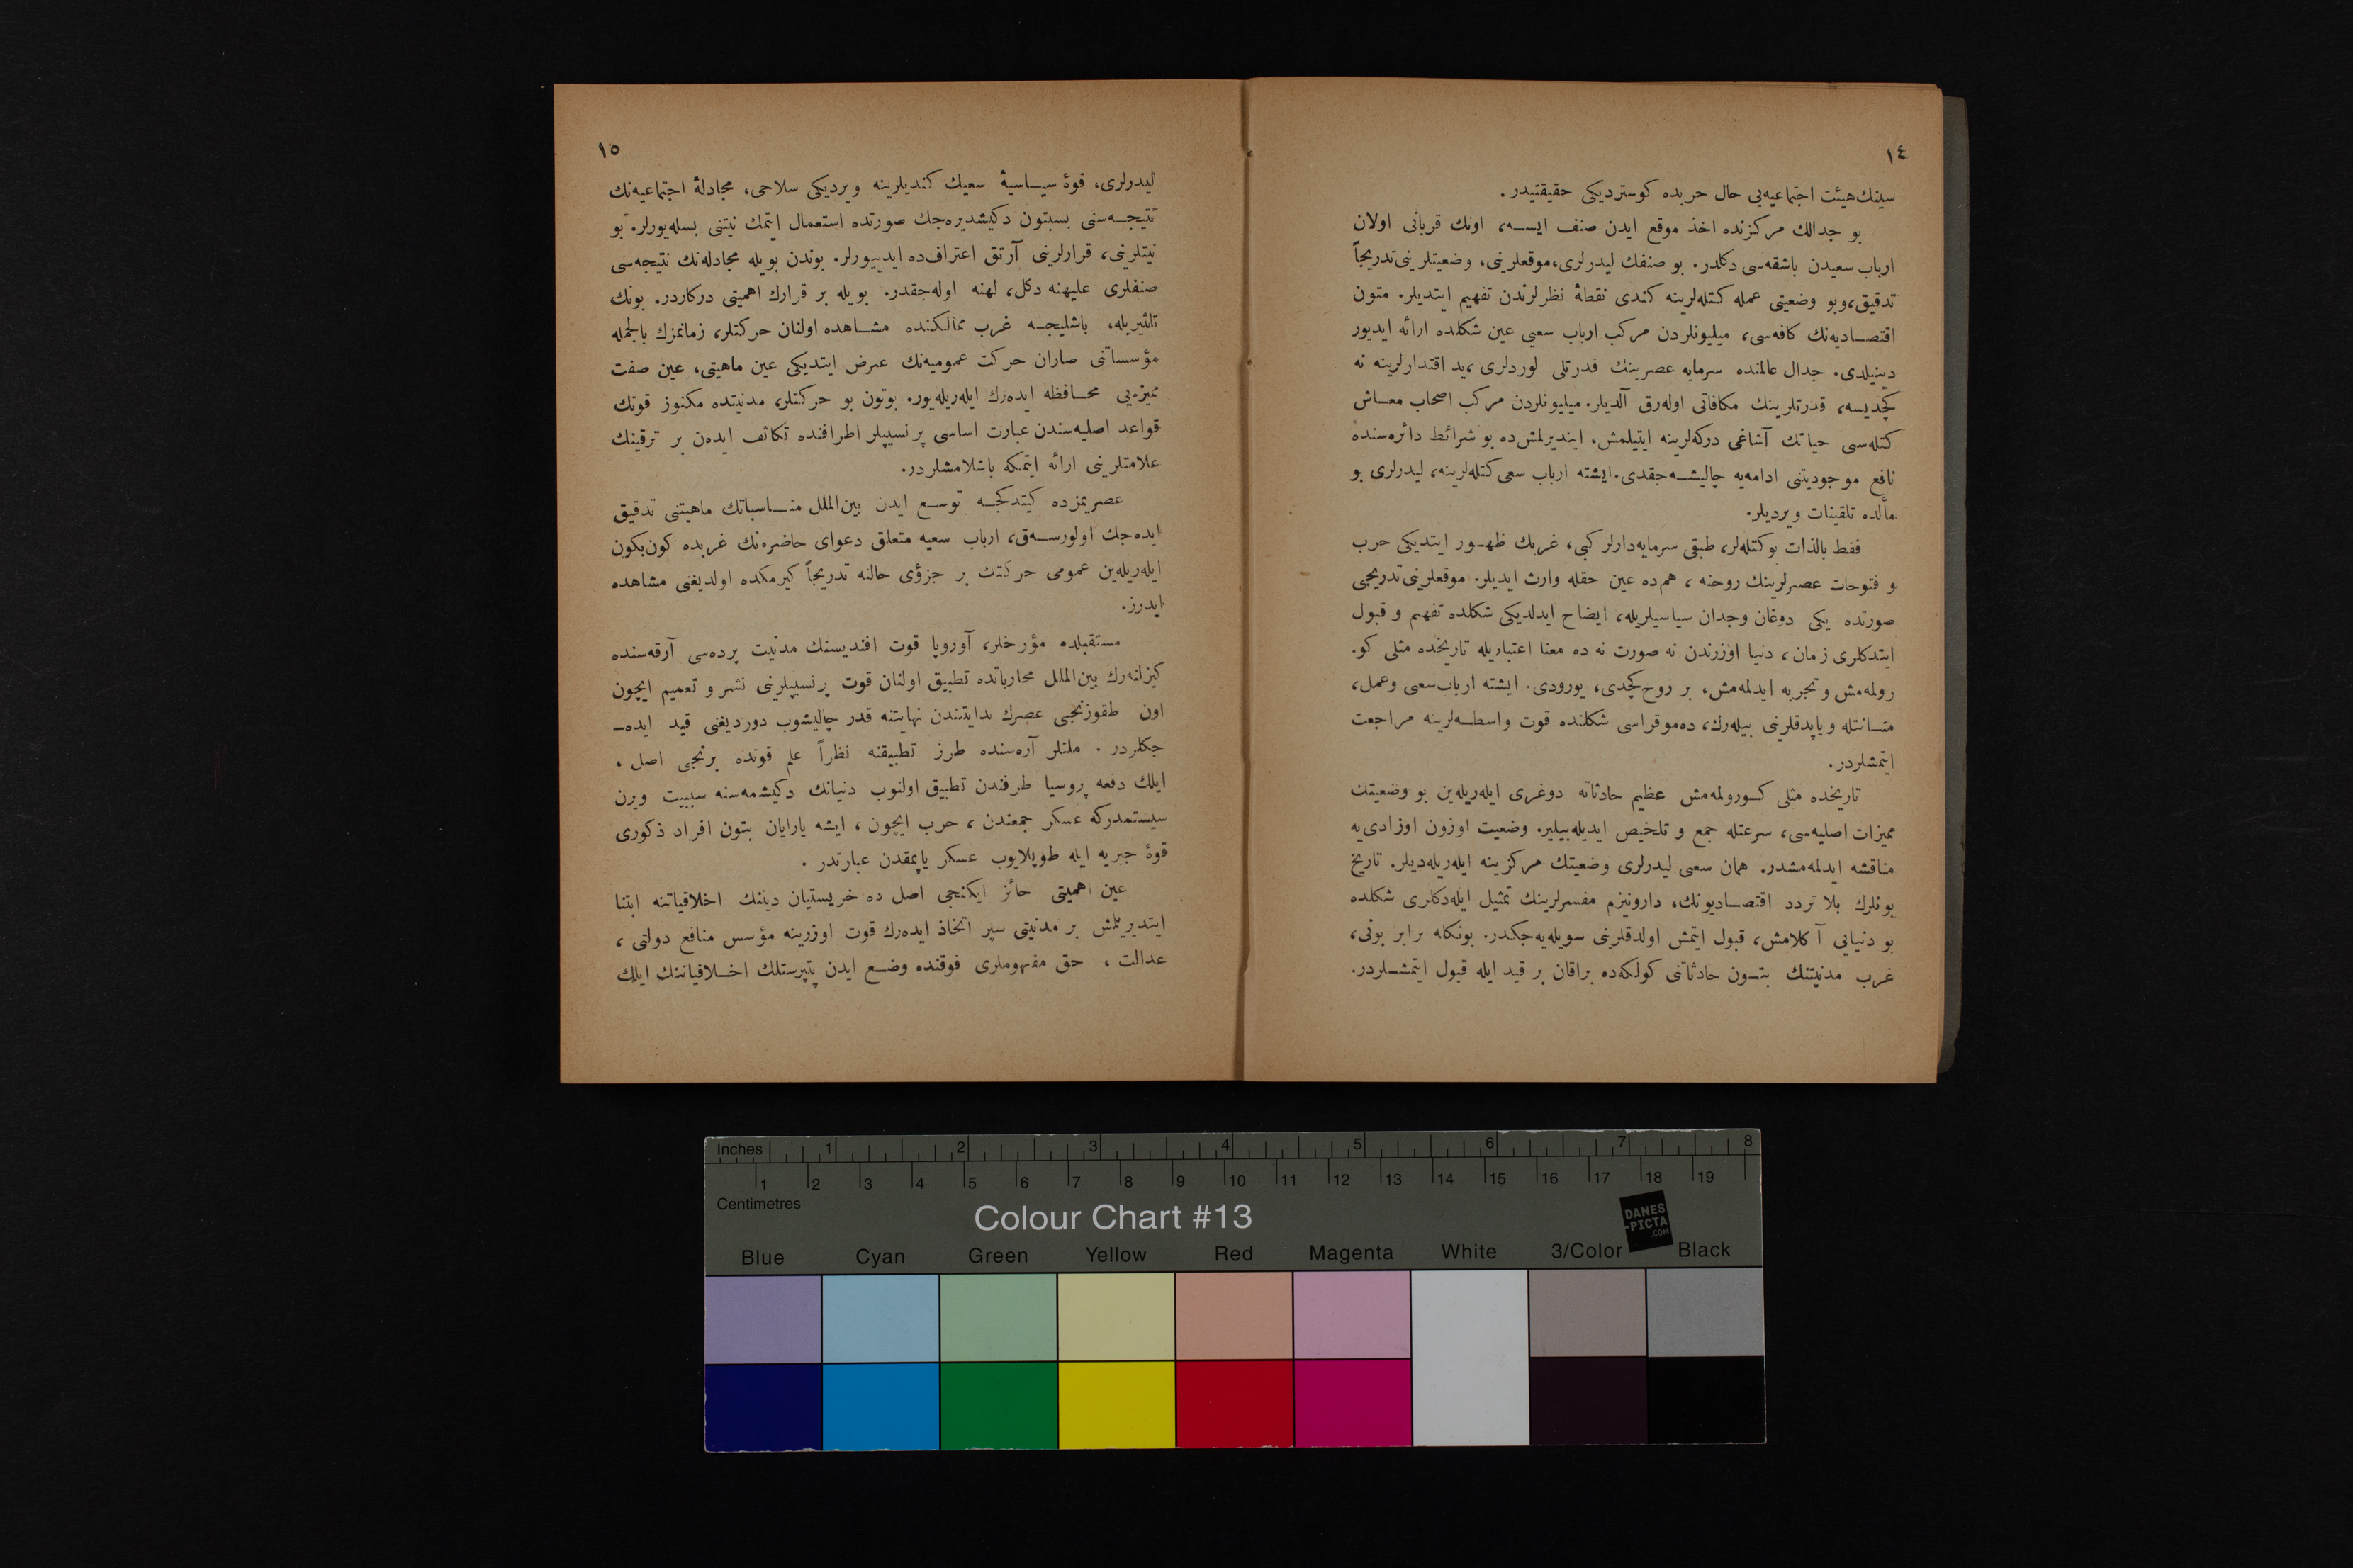 ١٤
سینك هیئت اجتماعیه‌یی حال حربده کوستردیکی حقیقتیدر .
بو جدالك مرکزنده اخذ موقع ایدن صنف ایسه، اونك قربانی اولان
ارباب سعیدن باشقه‌سی دکلدر. بو صنفك لیدرلری، موقعلرینی، وضعیتلرینی تدریجاً
تدقیق، وبو وضعیتی عمله کتله‌لرینه کندی نقطۀ نظرلرندن تفهیم ایتدیلر. متون
اقتصادیه‌نك کافه‌سی، میلیونلردن مرکب ارباب سعیی عین شکلده ارائه ایدیور
دینیلدی. جدال عالمنده سرمایه عصرینك قدرتلی لوردلری ،ید اقتدارلرینه نه
کچدیسه، قدرتلرینك مکافاتی اوله‌رق آلدیلر. میلیونلردن مرکب اصحاب معاش
کتله‌سی حیاتك آشاغی درکه‌لرینه ایتیلمش، ایندیرلمش‌ده بو شرائط دائره‌سنده
نافع موجودیتنی ادامه‌یه چالیشه‌جقدی. ایشته ارباب سعی کتله‌لرینه، لیدرلری بو
مأٓلده تلقینات ویردیلر.
فقط بالذات بوکتله‌لر، طبقی سرمایه‌دارلر کبی، غربك ظهور ایتدیکی حرب
و فتوحات عصرلرینك روحنه ، هم‌ده عین حقله وارث ایدیلر. موقعلرینی تدریجی
صورتده یکی دوغان وجدان سیاسیلریله، ایضاح ایدلدیکی شکلده تفهم و قبول
ایتدکلری زمان، دنیا اوزرندن نه صورت نه ده معنا اعتباریله تاریخده مثلی کو.
رولمه‌مش و تجربه ایدلمه‌مش، بر روح کچدی، یورودی. ایشته ارباب سعی وعمل،
متانتله ویاپدقلرینی بیله‌رك، ده‌موقراسی شکلنده قوت واسطه‌لرینه مراجعت
ایتمشلردر.
تاریخده مثلی کورولمه‌مش عظیم حادثاته دوغری ایله‌ریله‌ین بو وضعیتك
ممیزات اصلیه‌سی، سرعتله جمع و تلخیص ایدیله‌بیلیر. وضعیت اوزون اوزادی‌یه
مناقشه ایدلمه‌مشدر. همان سعی لیدرلری وضعیتك مرکزینه ایله‌ریله‌دیلر. تاریخ
بونلرك بلا تردد اقتصادیونك، داروینیزم مفسرلرینك تمثیل ایله‌دکلری شکلده
بو دنیایی آکلامش، قبول ایتمش اولدقلرینی سویله‌یه‌جکدر. بونکله برابر بونی،
غرب مدنیتنك بتون حادثاتنی کولکه‌ده براقان بر قید ایله قبول ایتمشلردر.
١٥
لیدرلری، قوۀ سیاسیۀ سعیك کندیلرینه ویردیکی سلاحی، مجادلۀ اجتماعیه‌نك
نتیجه‌سنی بسبتون دکیشدیره‌جك صورتده استعمال ایتمك نیتنی بسله‌یورلر. بو
نیتلرینی، قرارلرینی آرتق اعتراف‌ده ایدییورلر. بوندن بویله مجادله‌نك نتیجه‌سی
صنفلری علیهنه دکل، لهنه اوله‌جقدر. بویله بر قرارك اهمیتی درکاردر. بونك
تأثیریله، باشلیجه غرب ممالکنده مشاهده اولنان حرکتلر، زمانمزك بالجمله
مؤسساتنی صاران حرکت عمومیه‌نك عرض ایتدیکی عین ماهیتی، عین صفت
ممیزه‌یی محافظه ایده‌رك ایله‌ریله‌یور. بوتون بو حرکتلر، مدنیتده مکنوز قوتك
قواعد اصلیه‌سندن عبارت اساسی پرنسیپلر اطرافنده تکاثف ایده‌ن بر ترقینك
علامتلرینی ارائه ایتمکه باشلامشلردر.
عصریمزده کیتدکجه توسع ایدن بین‌الملل مناسباتك ماهیتنی تدقیق
ایده‌جك اولورسه‌ق، ارباب سعیه متعلق دعوای حاضره‌نك غربده کون‌بکون
ایله‌ریله‌ین عمومی حرکتك بر جزؤی حالنه تدریجاً کیرمکده اولدیغنی مشاهده
ایدرز.
مستقبلده مؤرخلر، آوروپا قوت افندیسنك مدنیت پرده‌سی آرقه‌سنده
کیزلنه‌رك بین‌الملل محارباتده تطبیق اولنان قوت پرنسیپلرینی نشر و تعمیم ایچون
اون طقوزنجی عصرك بدایتندن نهایتنه قدر چالیشوب دوردیغنی قید ایده‌ـ
جکلردر . ملتلر آره‌سنده طرز تطبیقنه نظراً علم قوتده برنجی اصل ،
ایلك دفعه پروسیا طرفندن تطبیق اولنوب دنیانك دکیشمه‌سنه سببیت ویرن
سیستمدرکه عسکر جمعندن ، حرب ایچون ، ایشه یارایان بتون افراد ذکوری
قوۀ جبریه ایله طوپلایوب عسکر یاپمقدن عبارتدر .
عین اهمیتی حائز ایکنجی اصل ده خریستیان دیننك اخلاقیاتنه ابتنا
ایتدیریلمش بر مدنیتی سپر اتخاذ ایده‌رك قوت اوزرینه مؤسس منافع دولتی ،
عدالت ، حق مفهوملری فوقنده وضع ایدن پتپرستلك اخلاقیاتنك ایلك
Inches 1 2 3 4 5 6 7 8
1 2 3 4 5 6 7 8 9 10 11 12 13 14 15 16 17 18 19
Centimetres
Colour Chart #13
DANES
-PICTA
.COM
Blue Cyan Green Yellow Red Magenta White 3/Color Black